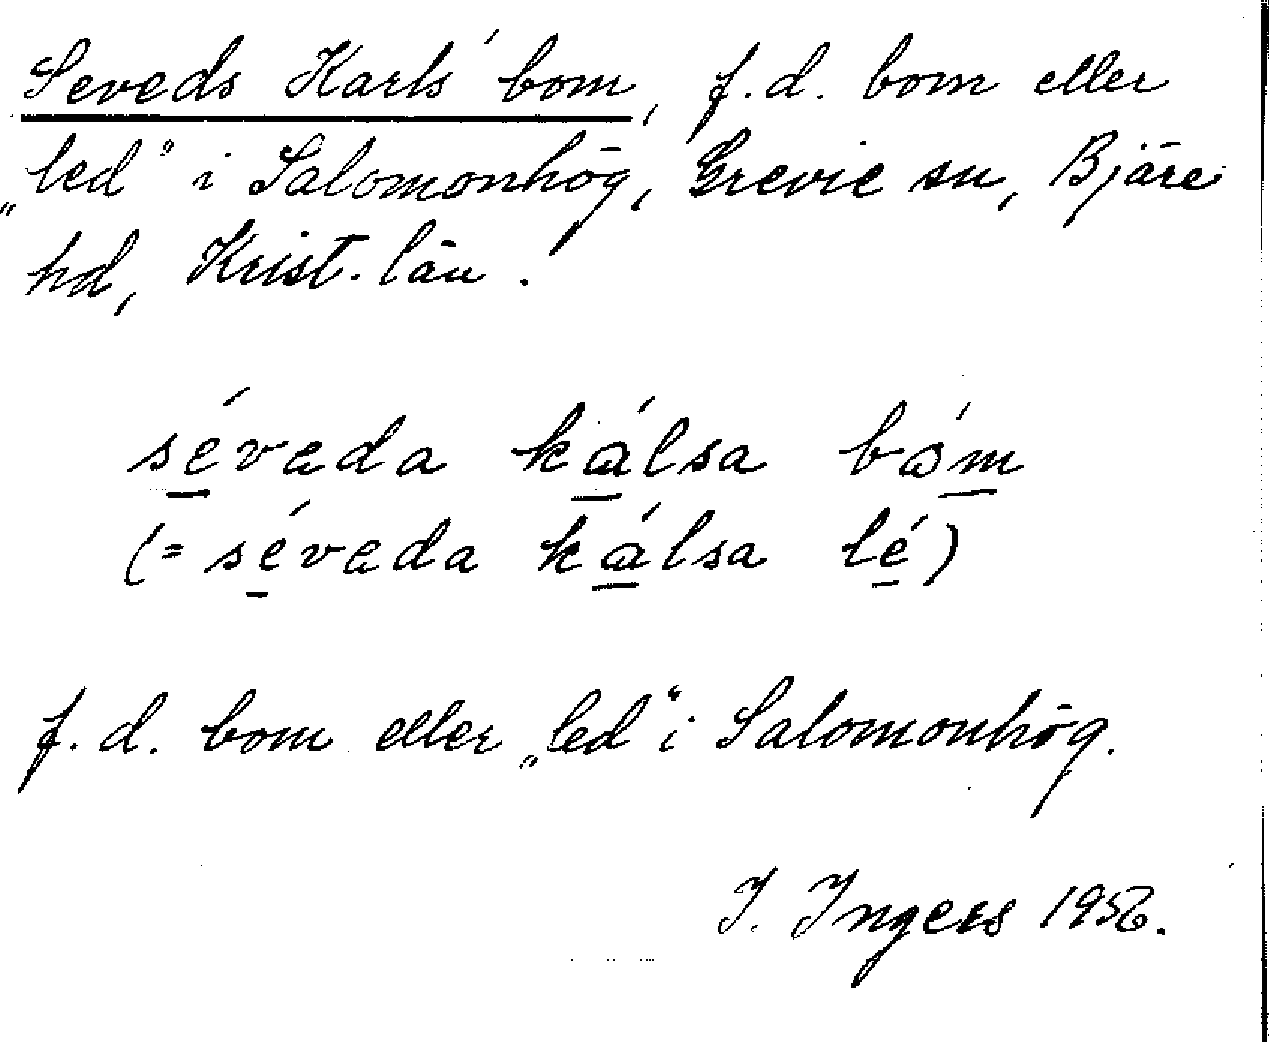 Seveds Karls' bom, f.d. bom eller
„led" i Salomonhög, Grevie sn, Bjäre
hd, Krist. län.
séveda kálsa bóm
(= séveda kálsa lé)
f.d. bom eller „led" i Salomonhög.
I. Ingers 1956.